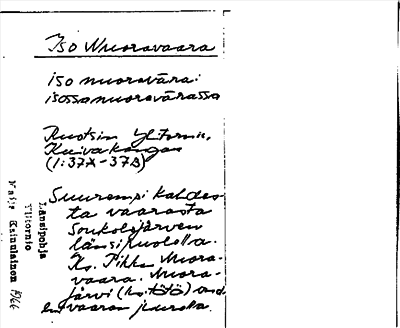 Iso Nuoravaara
iso nuoravāra:
isossa nuoravārassa
Ruotsin Ylitornio,
Kuivakangas
(1:37A-37B)
Suurempi kahdes-
ta vaarasta
Soukolojärven
länsipuolella.
Ks. Pikku Nuora-
vaara. Nuora-
järvi (ks. tötö) on
vaaran juurella.
Länsipohja
Ylitornio
Maija Kainulainen 1966